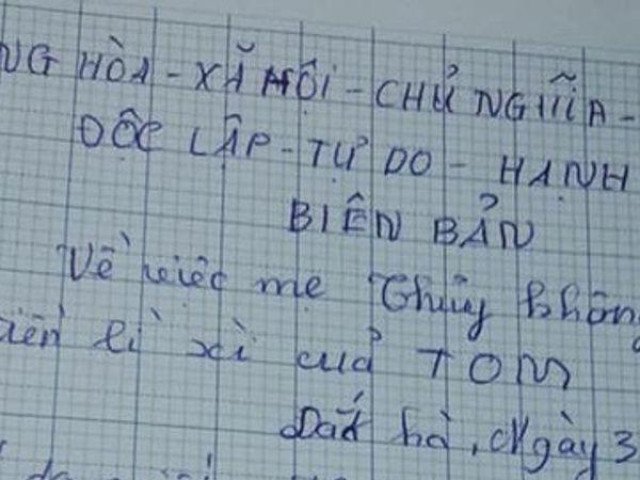 NG HÒA - XÃ HỘI - CHỦ NGHĨA -
ĐỘC LẬP - TỰ DO - HẠNH
BIÊN BẢN
Về việc mẹ Thủy không
tiền lì xì của TOM
Đắk hà, Ngày 3